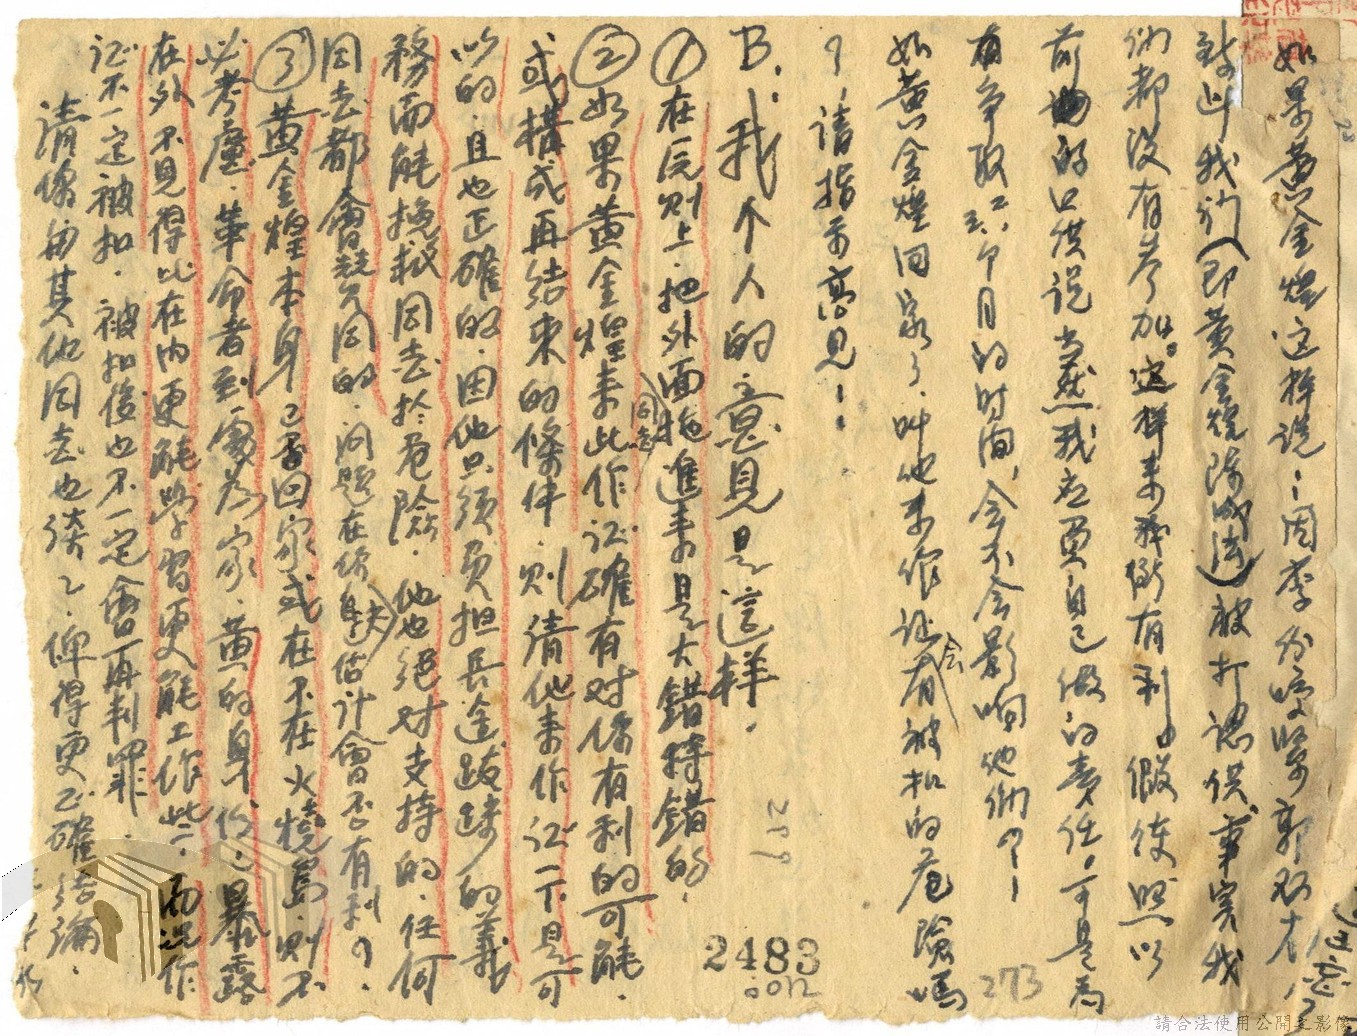 如果黄金煌这样说：因李
被判我们(即黄金煌陈)被打認供。事実我
们都没有参加。这样来我們有利。假使照以
前的口供说当然我应負自己做的責任。可是為
有争取六个月的时间，会不会影响他們？！
如黄金煌回家了，叫他来作证会有被扣的危險嗎
？！請指示高見！！
B. 我个人的意見是這样．
① 在原则上．把外面同志拖進来是大錯特錯的．
② 如果黄金煌来此作证確有对你有利的可能．
或構成再結束的條件．则請他来作证一下是可
以的．且也正確的．因他只須負担長途跋跡的義
務而能挽救同志於危險．他也絕对支持的．任何
同志都會競先同的．问題在你自估計會否有利？
③ 黄金煌本身已否回家或在不在火燒島．则不
必考慮．革命者到處為家．黄的身份．暴露
在外不見得比在内更能學習更能工作些．而況作
证不一定被扣．被扣後也不一定會再判罪．
請你與其他同志也談之．俾得更正確結論．
2483
273
209
請合法使用公開之影像